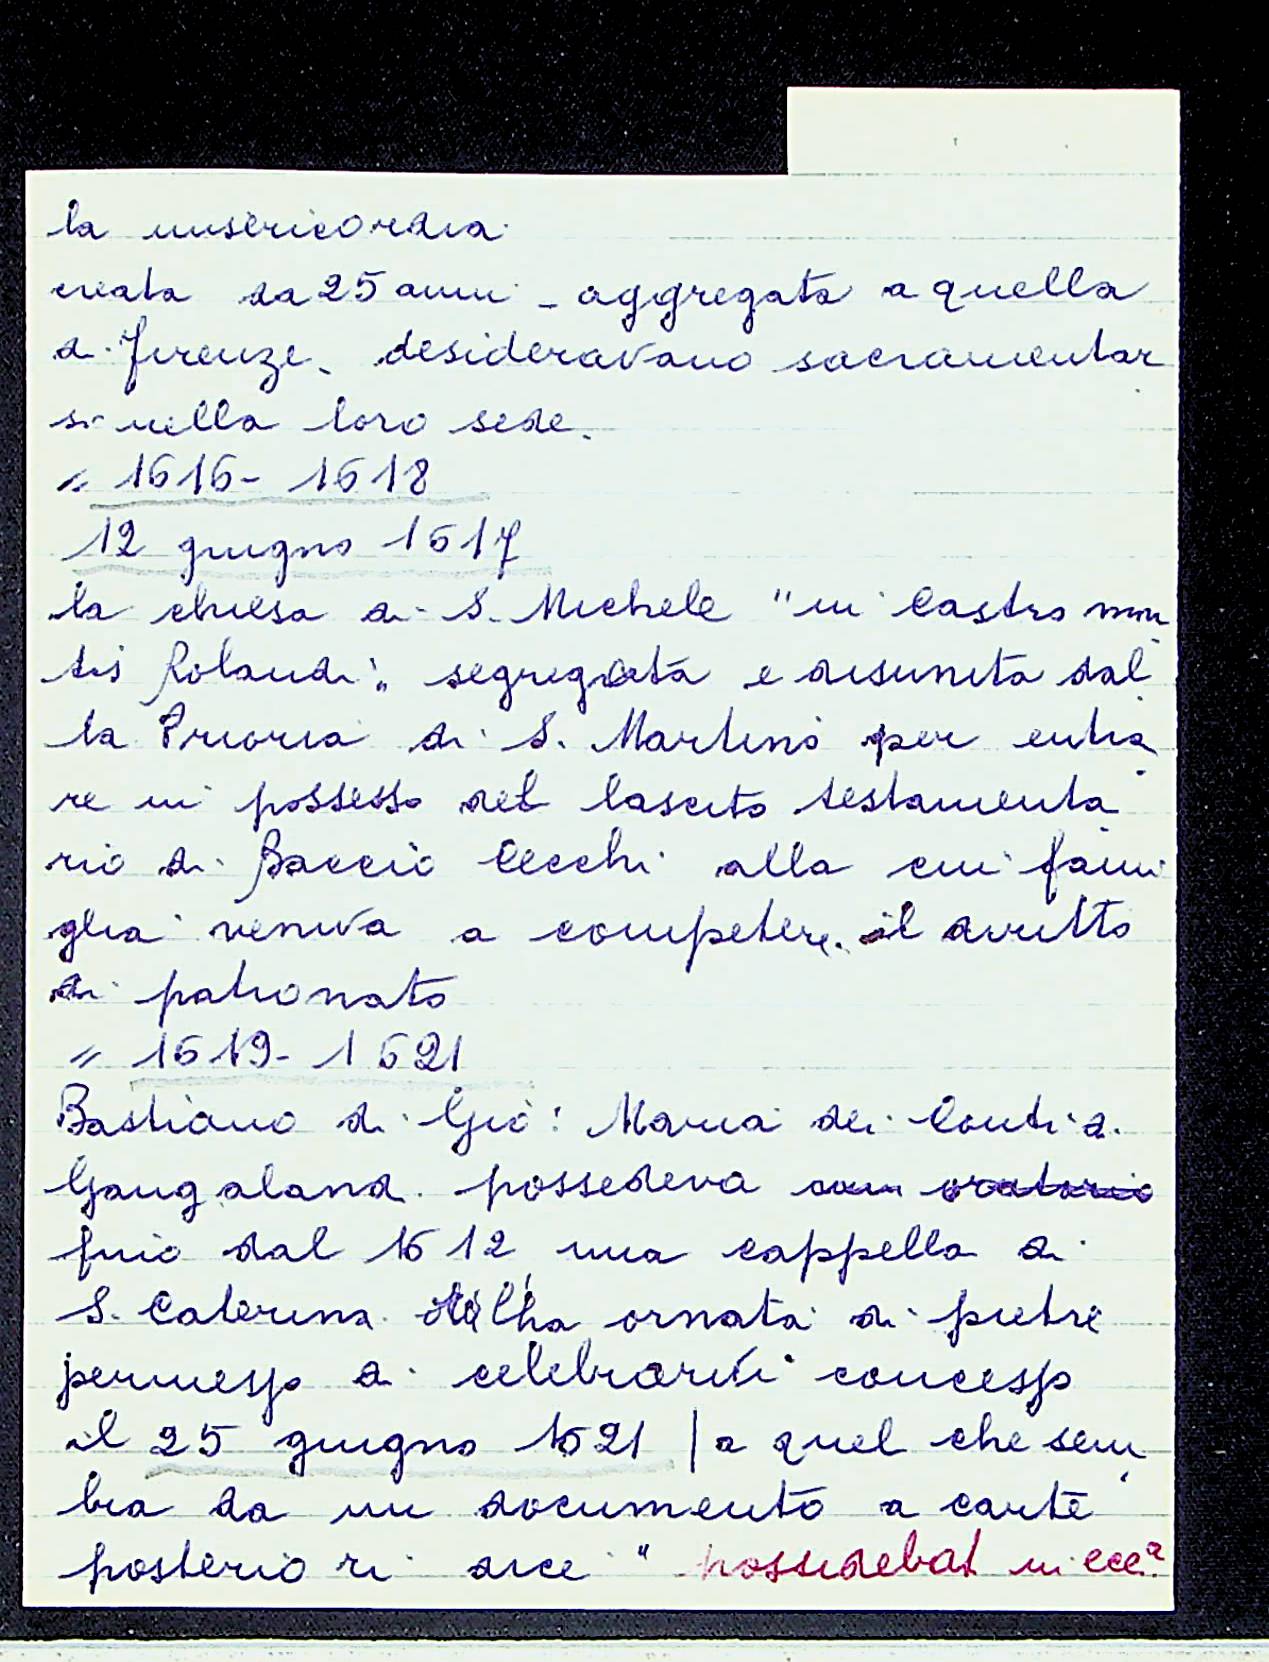 la misericordia
creata da 25 anni - aggregata a quella
di Firenze. desideravano sacramentar
si nella loro sede.
" 1616 - 1618
12 giugno 1617
la chiesa di S. Michele "in Castro mon
tis Rolandi" segregata e disunita dal
la Prioria di S. Martino per entra
re in possesso del lascito testamenta
rio di Baccio Cecchi alla cui fami
glia veniva a competere il diritto
di patronato
" 1619 - 1621
Bastiano di Gio: Maria dei Conti di
Gangaland. possedeva oratorio
fino dal 1612 una cappella di
S. Caterina ornata di pietre
permesso di celebrarvi concesso
il 25 giugno 1621 | a quel che sem
bra da un documento a carte
posteriori dice " possidebat in ecc.a